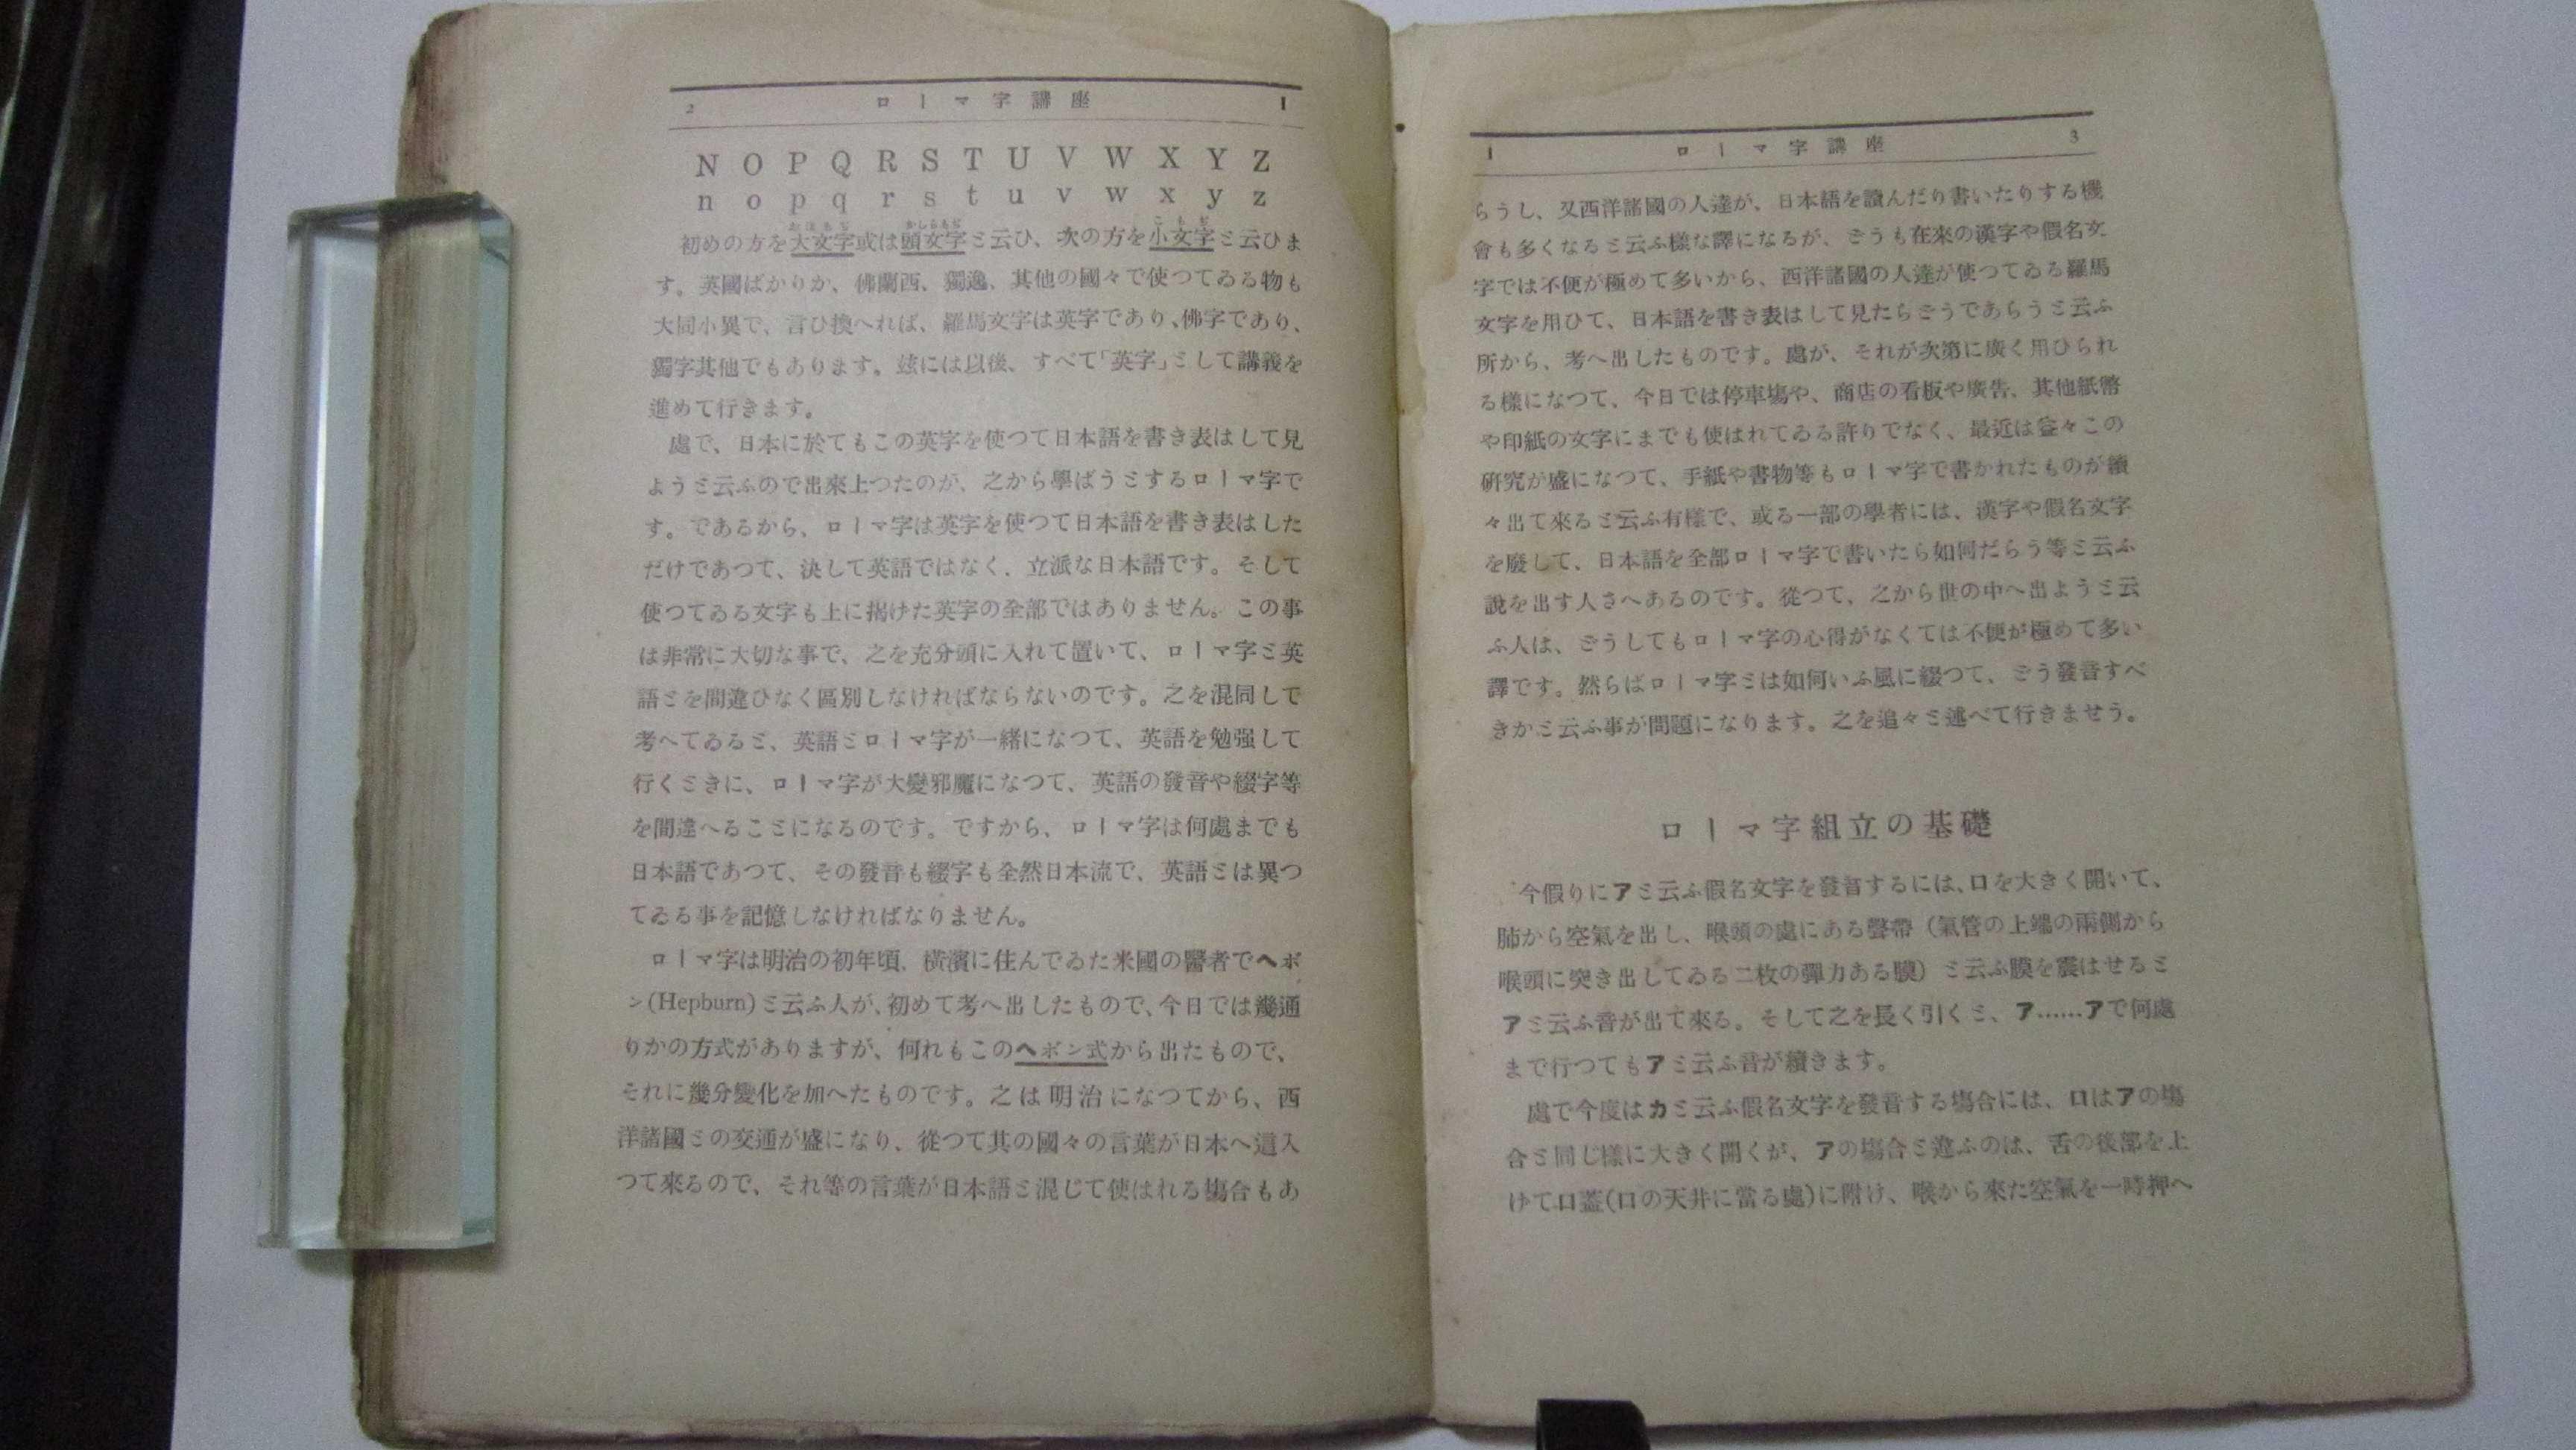 2 ローマ字講座 1
N O P Q R S T U V W X Y Z
n o p q r s t u v w x y z
初めの方を大文字或は頭文字と云ひ、次の方を小文字と云ひま
す。英國ばかりか、佛蘭西、獨逸、其他の國々で使つてゐる物も
大同小異で、言ひ換へれば、羅馬文字は英字であり、佛字であり、
獨字其他でもあります。玆には以後、すべて「英字」として講義を
進めて行きます。
處で、日本に於てもこの英字を使つて日本語を書き表はして見
ようと云ふので出來上つたのが、之から學ばうとするローマ字で
す。であるから、ローマ字は英字を使つて日本語を書き表はした
だけであつて、決して英語ではなく、立派な日本語です。そして
使つてゐる文字も上に揭けた英字の全部ではありません。この事
は非常に大切な事で、之を充分頭に入れて置いて、ローマ字と英
語とを間違ひなく區別しなければならないのです。之を混同して
考へてゐると、英語とローマ字が一緖になつて、英語を勉强して
行くときに、ローマ字が大變邪魔になつて、英語の發音や綴字等
を間違へることになるのです。ですから、ローマ字は何處までも
日本語であつて、その發音も綴字も全然日本流で、英語とは異つ
てゐる事を記憶しなければなりません。
ローマ字は明治の初年頃、橫濱に住んでゐた米國の醫者でヘボ
ン(Hepburn)と云ふ人が、初めて考へ出したもので、今日では幾通
りかの方式がありますが、何れもこのヘボン式から出たもので、
それに幾分變化を加へたものです。之は明治になつてから、西
洋諸國との交通が盛になり、從つて其の國々の言葉が日本へ這入
つて來るので、それ等の言葉が日本語と混じて使はれる塲合もあ
1 ローマ字講座 3
らうし、又西洋諸國の人達が、日本語を讀んだり書いたりする機
會も多くなると云ふ樣な譯になるが、どうも在來の漢字や假名文
字では不便が極めて多いから、西洋諸國の人達が使つてゐる羅馬
文字を用ひて、日本語を書き表はして見たらどうであらうと云ふ
所から、考へ出したものです。處が、それが次第に廣く用ひられ
る樣になつて、今日では停車塲や、商店の看板や廣告、其他紙幣
や印紙の文字にまでも使はれてゐる許りでなく、最近は益々この
硏究が盛になつて、手紙や書物等もローマ字で書かれたものが續
々出て來ると云ふ有樣で、或る一部の學者には、漢字や假名文字
を廢して、日本語を全部ローマ字で書いたら如何だらう等と云ふ
說を出す人さへあるのです。從つて、之から世の中へ出ようと云
ふ人は、どうしてもローマ字の心得がなくては不便が極めて多い
譯です。然らばローマ字とは如何いふ風に綴つて、どう發音すべ
きかと云ふ事が問題になります。之を追々と述べて行きませう。
ローマ字組立の基礎
今假りにアと云ふ假名文字を發音するには、口を大きく開いて、
肺から空氣を出し、喉頭の處にある聲帶（氣管の上端の兩側から
喉頭に突き出してゐる二枚の彈力ある膜）と云ふ膜を震はせると
アと云ふ音が出て來る。そして之を長く引くと、ア……アで何處
まで行つてもアと云ふ音が續きます。
處で今度はカと云ふ假名文字を發音する塲合には、口はアの塲
合と同じ樣に大きく開くが、アの塲合と違ふのは、舌の後部を上
げて口蓋(口の天井に當る處)に附け、喉から來た空氣を一時押へ